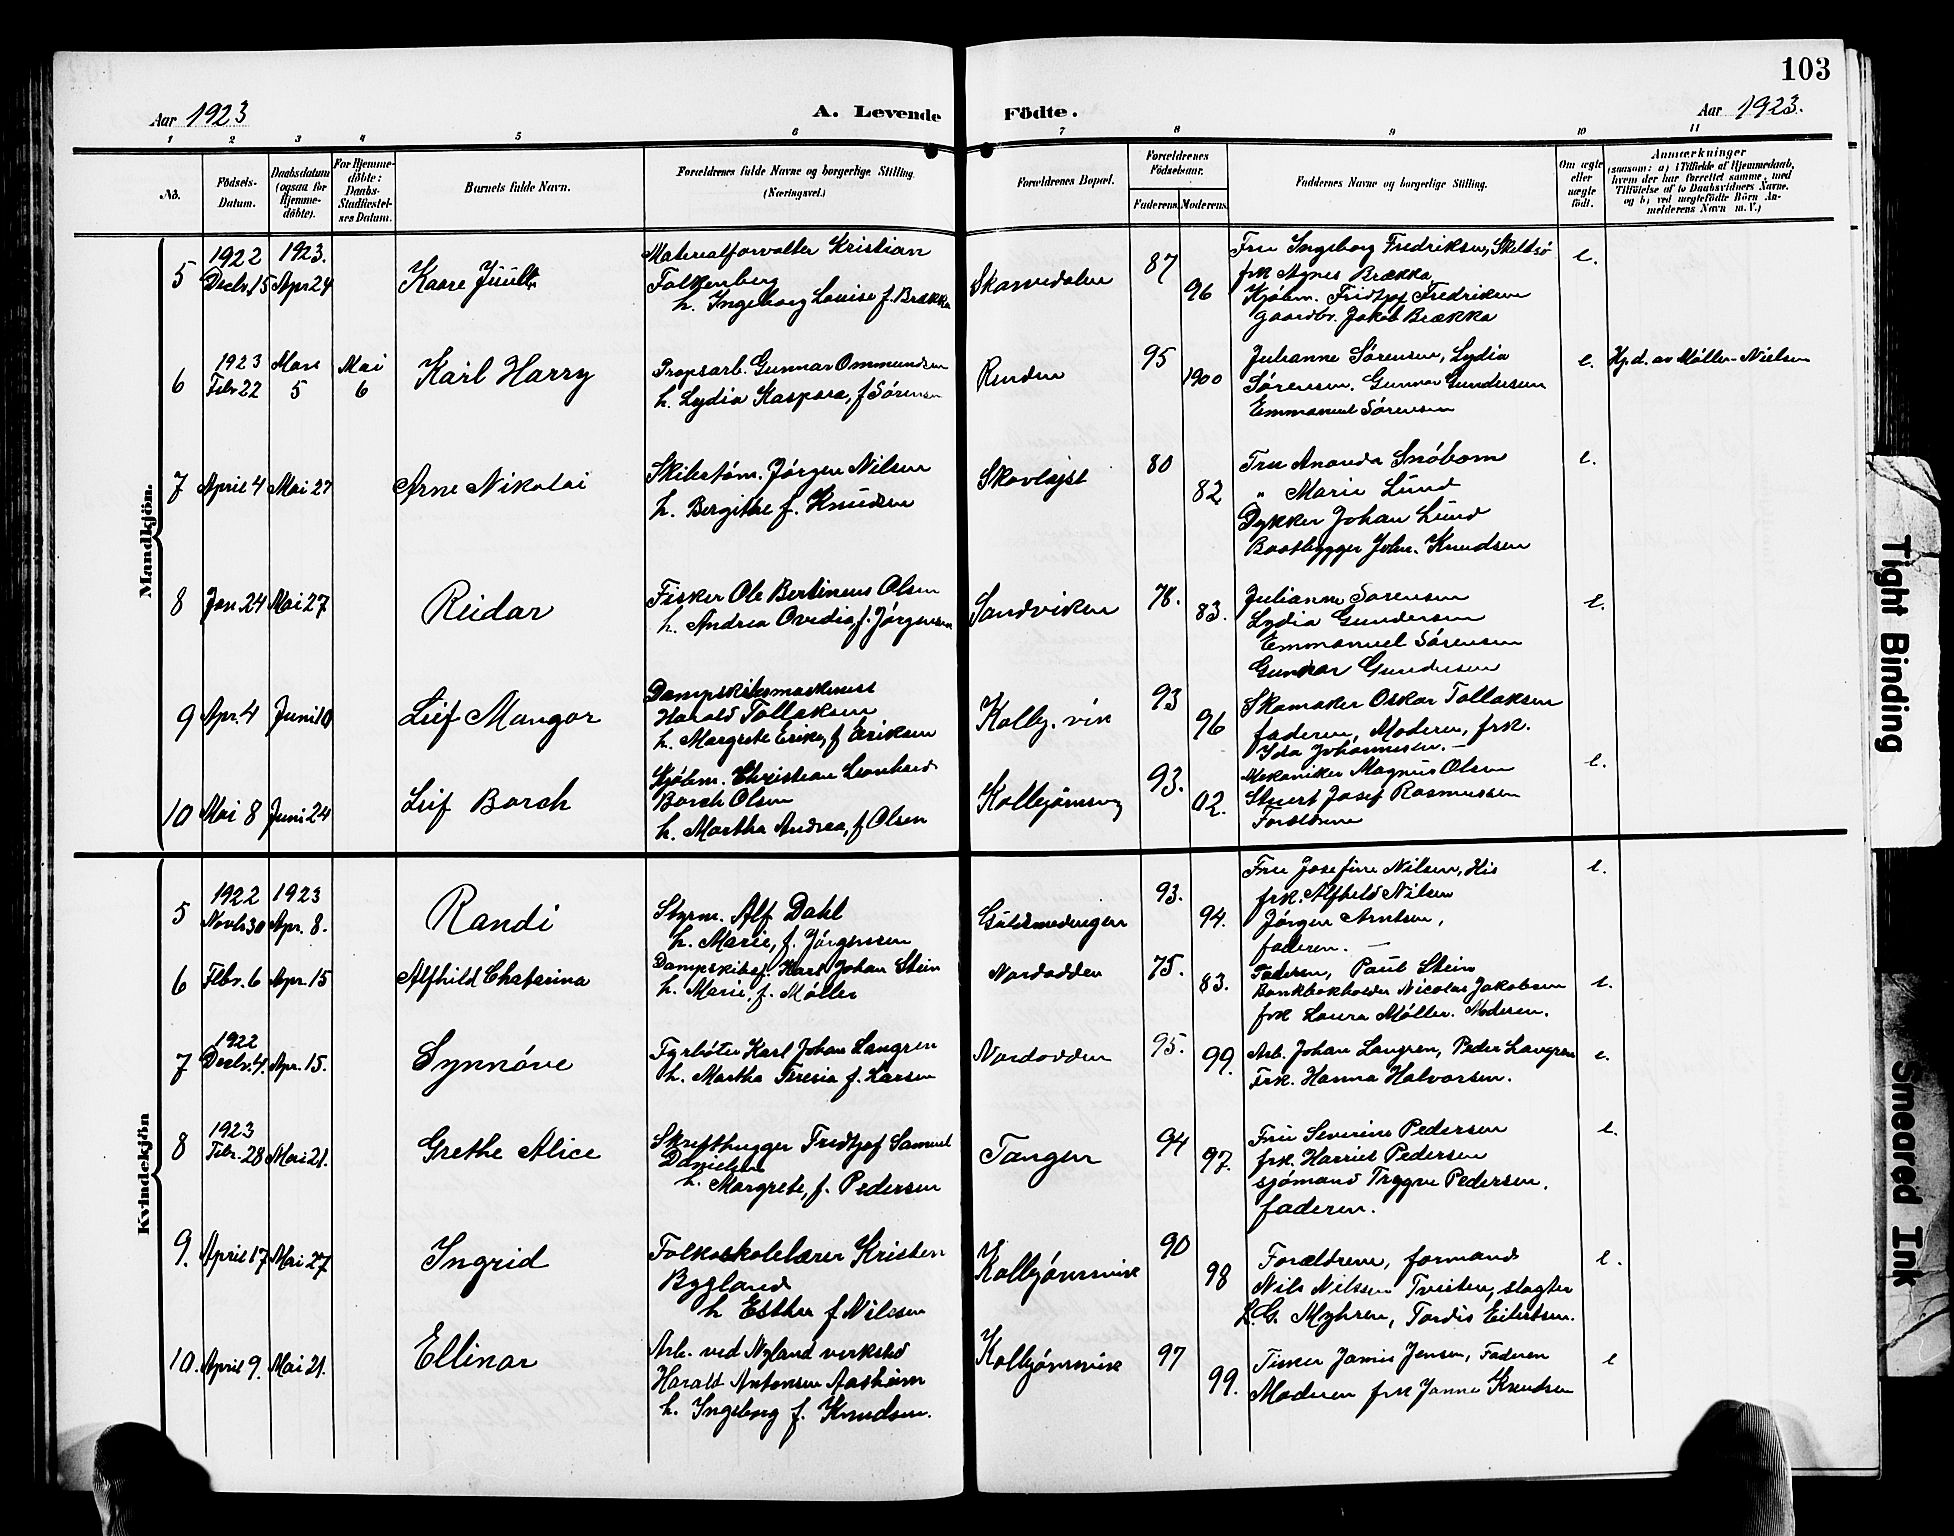 103
Aar 1923
A. Levende
Födte.
Aar 1923.
1 2 3 4 5 6 7 8 9 10 11
No.
Födsels-Datum.
Daabsdatum (ogsaa for Hjemme-döbte).
For Hjemme-döbte: Daabs-Stadfæstel-ses Datum.
Barnets fulde Navn.
Forældrenes fulde Navne og borgerlige Stilling. (Næringsvei.)
Forældrenes Bopæl.
Forældrenes Födselsaar.
Faderens. Moderens.
Faddernes Navne og borgerlige Stilling.
Om ægte eller uægte födt.
Anmærkninger
(saasom: a) i Tilfælde af Hjemmedaab,
hvem der har forrettet samme, med
Tilföielse af to Daabsvidners Navne,
og b) ved uægtefödte Börn An-
melderens Navn m. V.)
Mandkjön.
5 1922 Decbr. 15 1923. Apr 24 Kaare Juul
Materialforvalter Kristian
Falkenberg
h. Ingeborg Louise f. Brække
87 96
Fru Ingeborg Fredriksen,
frk Agnes Brække
Kjøbm. Fridtjof Fredriksen
gaardbr. Jakob Brække
e.
6 1923 Febr 22 Mars 5 Mai 6 Karl Harry
Propsarb. Gunnar Ommundsen
h. Lydia Kaspara, f Sørensen
95 1900
Julianne Sørensen, Lydia
Sørensen. Gunnar Gundersen
Emmanuel Sørensen
e. Hj.d. av Møller-Nielsen
7 April 4 Mai 27 Arne Nikolai
Skibstøm. Jørgen Nilsen
h. Bergitte f. Knudsen
80 82
Fru Ananda Snöbom
" Marie Lund
Dykker Johan Lund
Baatbygger Johs. Knudsen
e.
8 Jan. 24 Mai 27 Reidar
Fisker Ole Bertineus Olsen
h. Andrea Ovidia, f. Jørgensen
Sandviken
78. 83.
Julianne Sørensen
Lydia Gundersen
Emmanuel Sørensen
Gunnar Gundersen
e.
9 Apr. 4 Juni 10 Leif Mangor
Dampskibsmaskinist
Harald Tollaksen
h. Margrete Erika, f Eriksen
Kolbj. vik
93 96
Skomaker Oskar Tollaksen
faderen, Moderen, frk.
Ida Johannesen. –
10 Mai 8 Juni 24 Leif Borch
Kjøbm. Christian Leonhard
Borch Olsen
h. Martha Andrea, f Olsen
93. 02.
Mekaniker Magnus Olsen
Stuert Josef Rasmussen
Forældrene
e.
Kvindekjön
5 1922 Novbr 30 1923 Apr. 8. Randi
Styrm. Alf Dahl
h. Marie, f. Jørgensen
Guldsmedengen
93. 94.
Fru Josefine Nilsen, His
frk. Alfhild Nilsen
Jørgen Arntsen,
faderen. –
e.
6 Febr. 6 Apr. 15 Alfhild Chatarina
Karl Johan Stein
h. Marie. f. Møller
Nordodden
75. 83.
Faderen, Paul Stein
Bankbokholder Nicolai Jakobsen
frk Laura Møller. Moderen.
e.
7 1922 Decbr. 4. Apr. 15. Synnöve
Fyrbøter Karl Johan Langren
h. Martha Teresia f. Larsen
Nordodden
95. 99.
Arb. Johan Langren, Peder Langren
Frk. Hanna Halvorsen.
e.
8 1923 Febr. 28 Mai 21. Grethe Alice
Skrifthugger Fridtjof Samuel
Danielsen
h. Margrete, f. Pedersen
Tangen
94 97.
Fru Severine Pedersen
frk. Harriet Pedersen
sjømand Trygve Pedersen.
faderen.
e.
9. April 17 Mai 27 Ingrid
Folkeskolelærer Kristen
Bygland
h Esther f Nilssen
Kolbjørnsvik
90 98
Forældrene, formand
Nils Nilssen Tveiten, slagter
L. G. Myhren, Tordis Eilertsen.
e.
10. April 9. Mai 21. Ellinor
Arb. ved Nyland verksted
Harald Antonsen Aasheim
h. Ingeborg f. Knudsen.
Kolbjørnsvik
97 99.
Fisker Jamis Jensen, Faderen
Moderen frk Janna Knudsen
e
Tight Binding
Smeared Ink